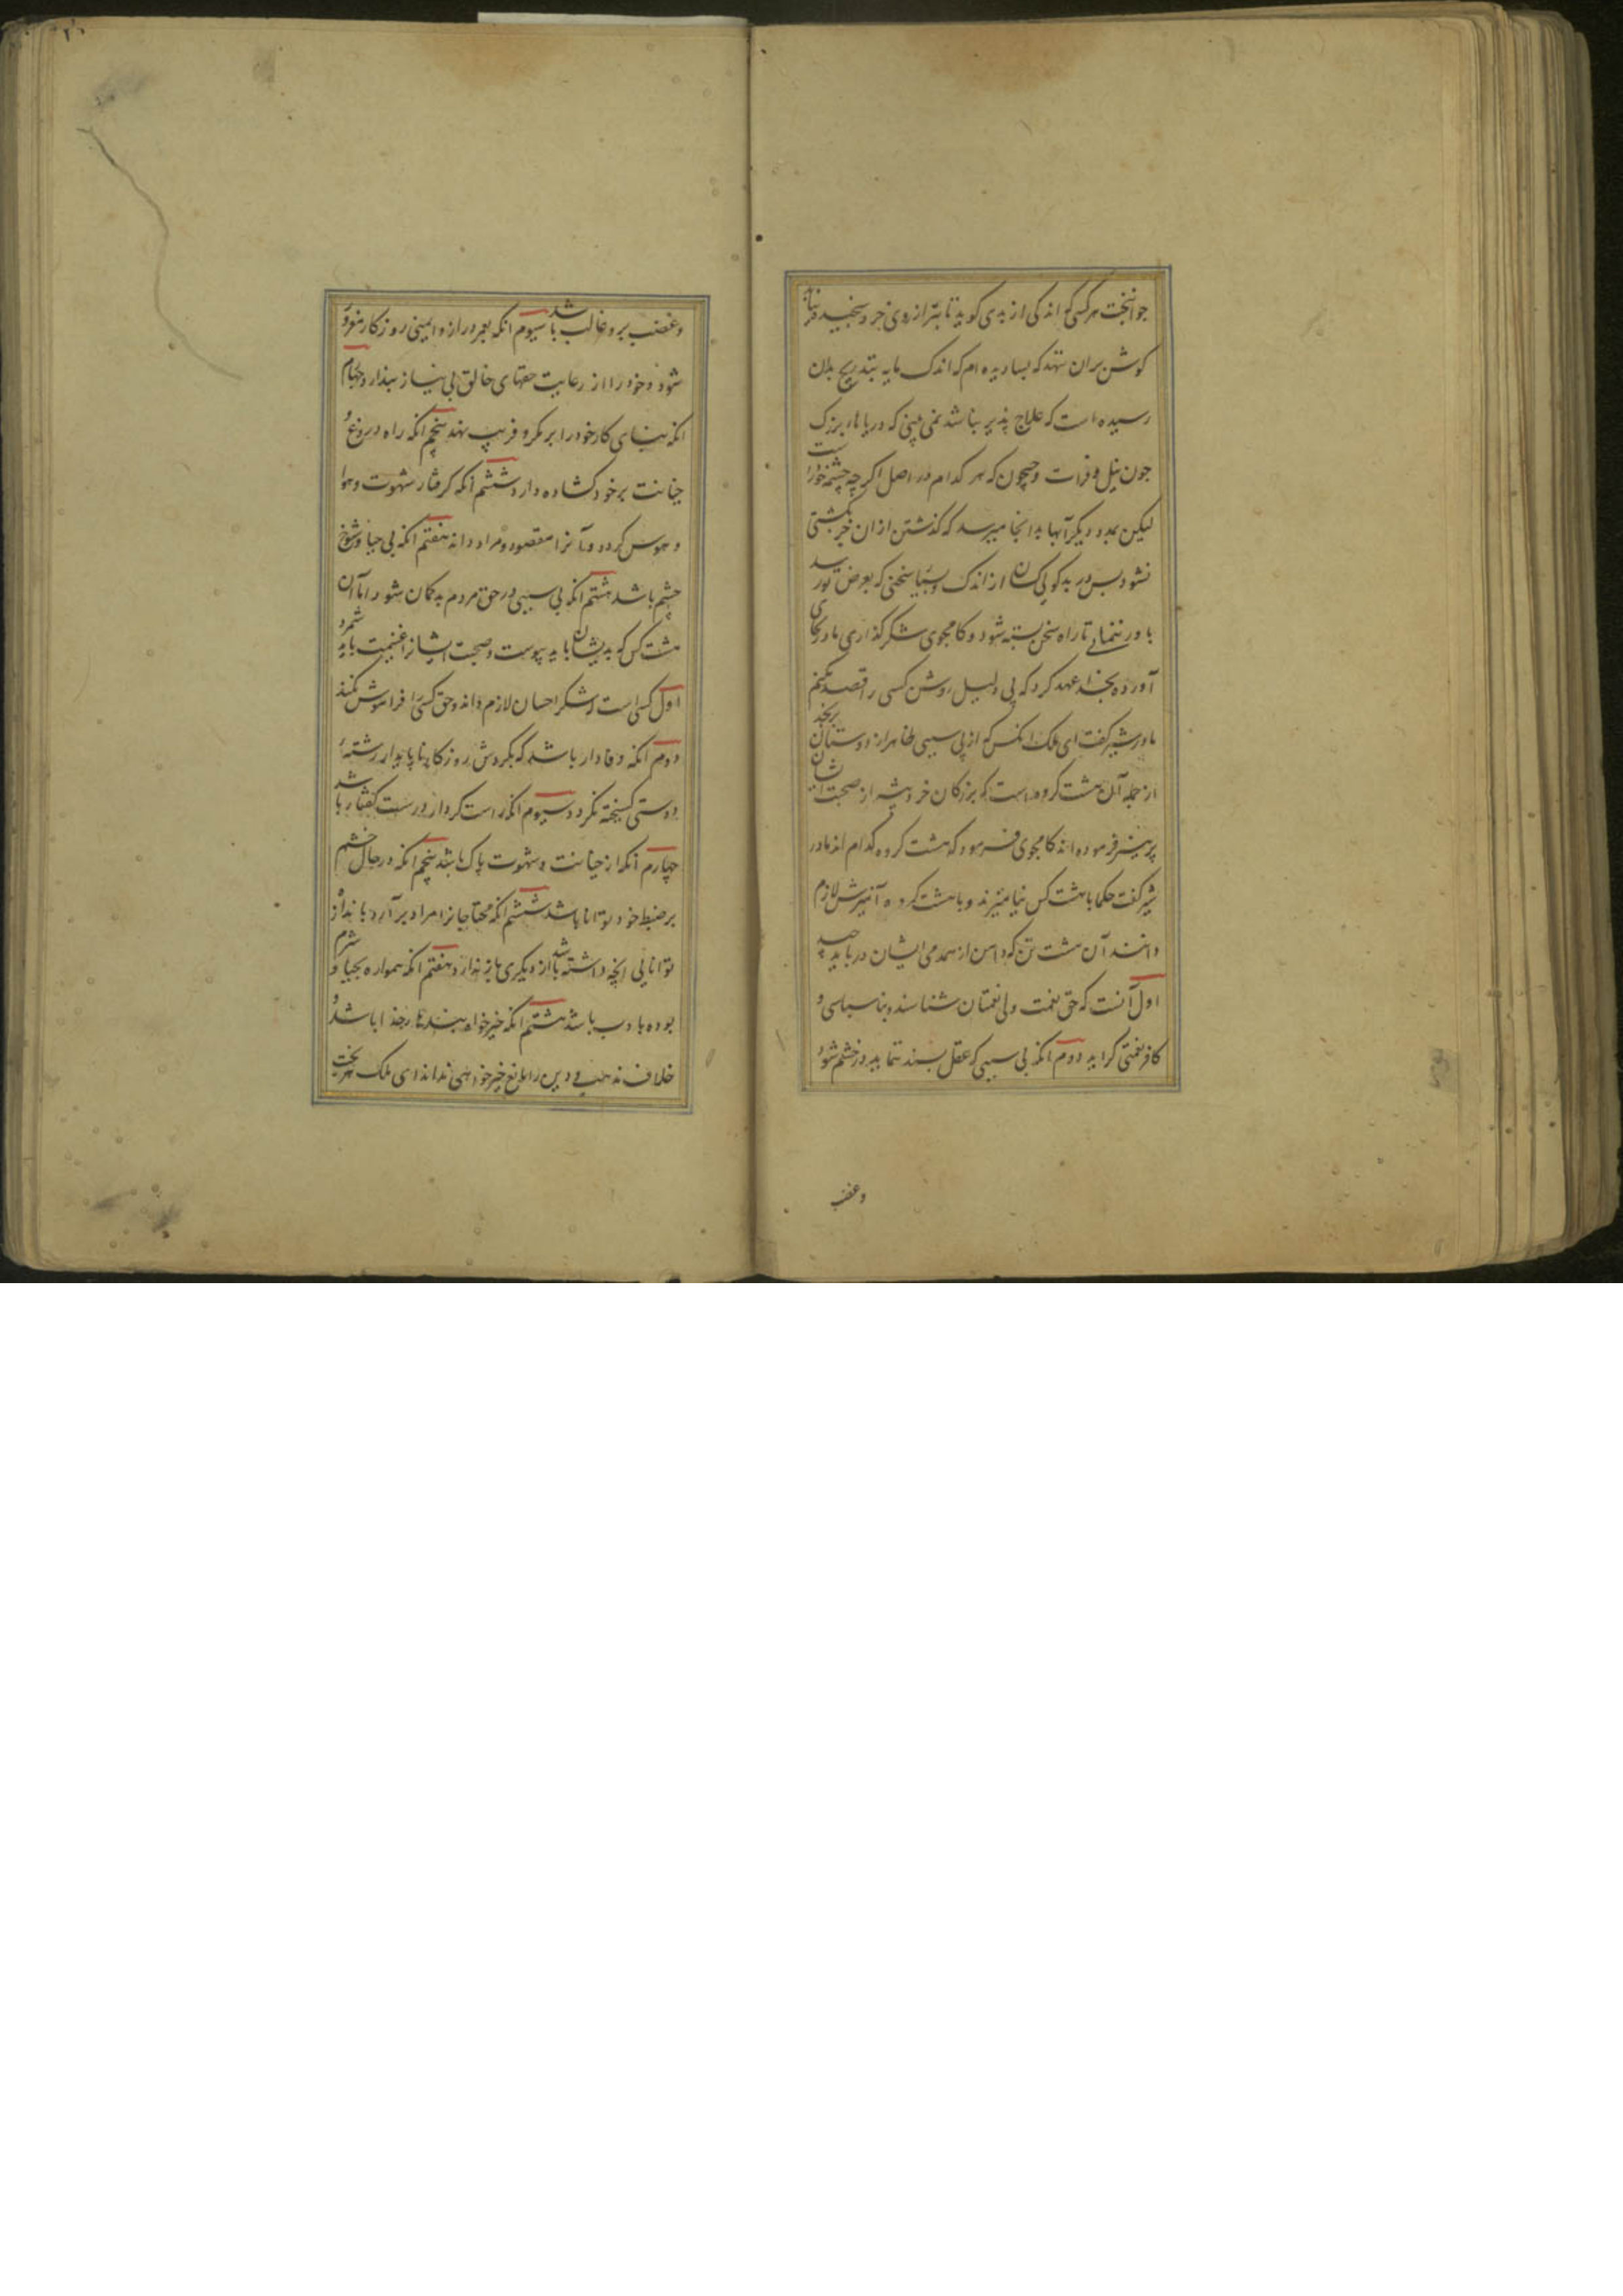 جوانبخت هر کس که اندکی از بدی گوید تا بترازوی خرد نسنجید
کوش بران ننهد که بسا دیده ام که اندک مایه بتدریج بدان
رسیده است که علاج پذیر نباشد نمی بینی که دریاهاء بزرک
چون نیل و فرات و جیحون که هر کدام در اصل اگر چه چشمه خورد است
لیکن بمدد دیگر آبها بدانجا میرسد که گذشتن ازان جز بکشتی
نشود پس در بدکویی کسان از اندک و بسیار سخنی که بعرض تو رسد
باور ننمای تا راه سخن بسته شود و کامجوی شکرگذاری مادر بجای
آورده بخدا عهد کرد که بی دلیل روشن کسی را قصد نکنم
مادر شیر گفت ای ملک انکس که از بی سببی ظاهر از دوستان برنجد
از جمله آن هشت گروه است که بزرگان خردپیشه از صحبت ایشان
پرهیز فرموده اند کامجوی فرمود که هشت گروه کدام اند مادر
شیر گفت حکما با هشت کس نیامیزند و با هشت گروه آمیزش لازم
دانند آن هشت تن که دامن از همدمی ایشان در باید چید
اول آنست که حق نعمت ولی نعمتان نشناسد و بناسپاسی و
کافر نعمتی گراید دوم انکه بی سببی که عقل پسند نماید در خشم شود
و غضب
و غضب برو غالب باشد سیوم انکه بعمر دراز و ایمنی روزگار مغرور
شود و خود را از رعایت حقهای خالق بی نیاز پندارد چهارم
انکه بنای کار خود را بر مکر و فریب نهد پنجم انکه راه دروغ و
خیانت بر خود کشاده دارد ششم انکه گرفتار شهوت و هوا
و هوس گردد و آنرا مقصود و مراد داند هفتم انکه بی حیا و شوخ
چشم باشد هشتم انکه بی سببی در حق مردم بدگمان شود اما آن
هشت کس که بدیشان باید پیوست و صحبت ایشانرا غنیمت باید شمرد
اول کسی است که شکر احسان لازم داند و حق کسی را فراموش نکند
دوم انکه وفادار باشد که بگردش روزگار ناپایدار رشتهٔ
دوستی گسیخته نگردد سیوم انکه راست کردار و درست گفتار باشد
چهارم انکه از خیانت و شهوت پاک باشد پنجم انکه در حال خشم
بر ضبط خود توانا باشد ششم انکه محتاجانرا مراد بر آرد باندازه
توانایی انچه داشته باشد از دیگری باز ندارد هفتم انکه همواره بحیا و شرم
بوده باادب باشد هشتم انکه خیرخواه بندهای خدا باشد و
خلاف مذهب و دین را مانع خیرخواهی نداند ای ملک هر بخت